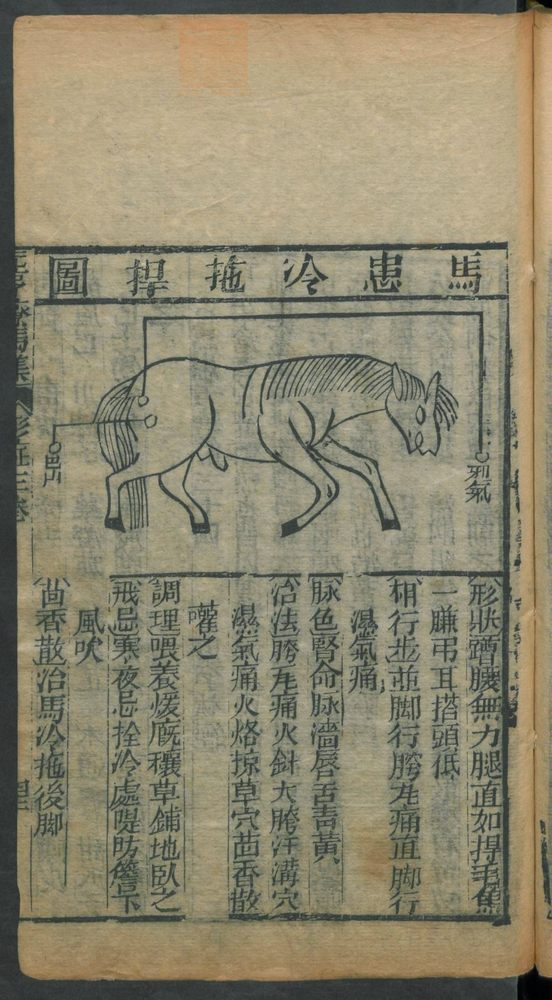 馬患冷拖捍圖
邪氣
巴山
形狀蹲腰無力腿直如捍毛焦
一膁弔耳搭頭低
相行步並脚行胯尨痛直脚行
濕氣痛
脉色腎命脉濇唇舌青黃
治法胯尨痛火針大胯汗溝穴
濕氣痛火烙掠草穴茴香散
嚾之
調理喂養煖廄穰草鋪地臥之
戒忌寒夜忌拴冷處隄防簷下
風吹
茴香散治馬冷拖後脚
元亨療馬集
三卷